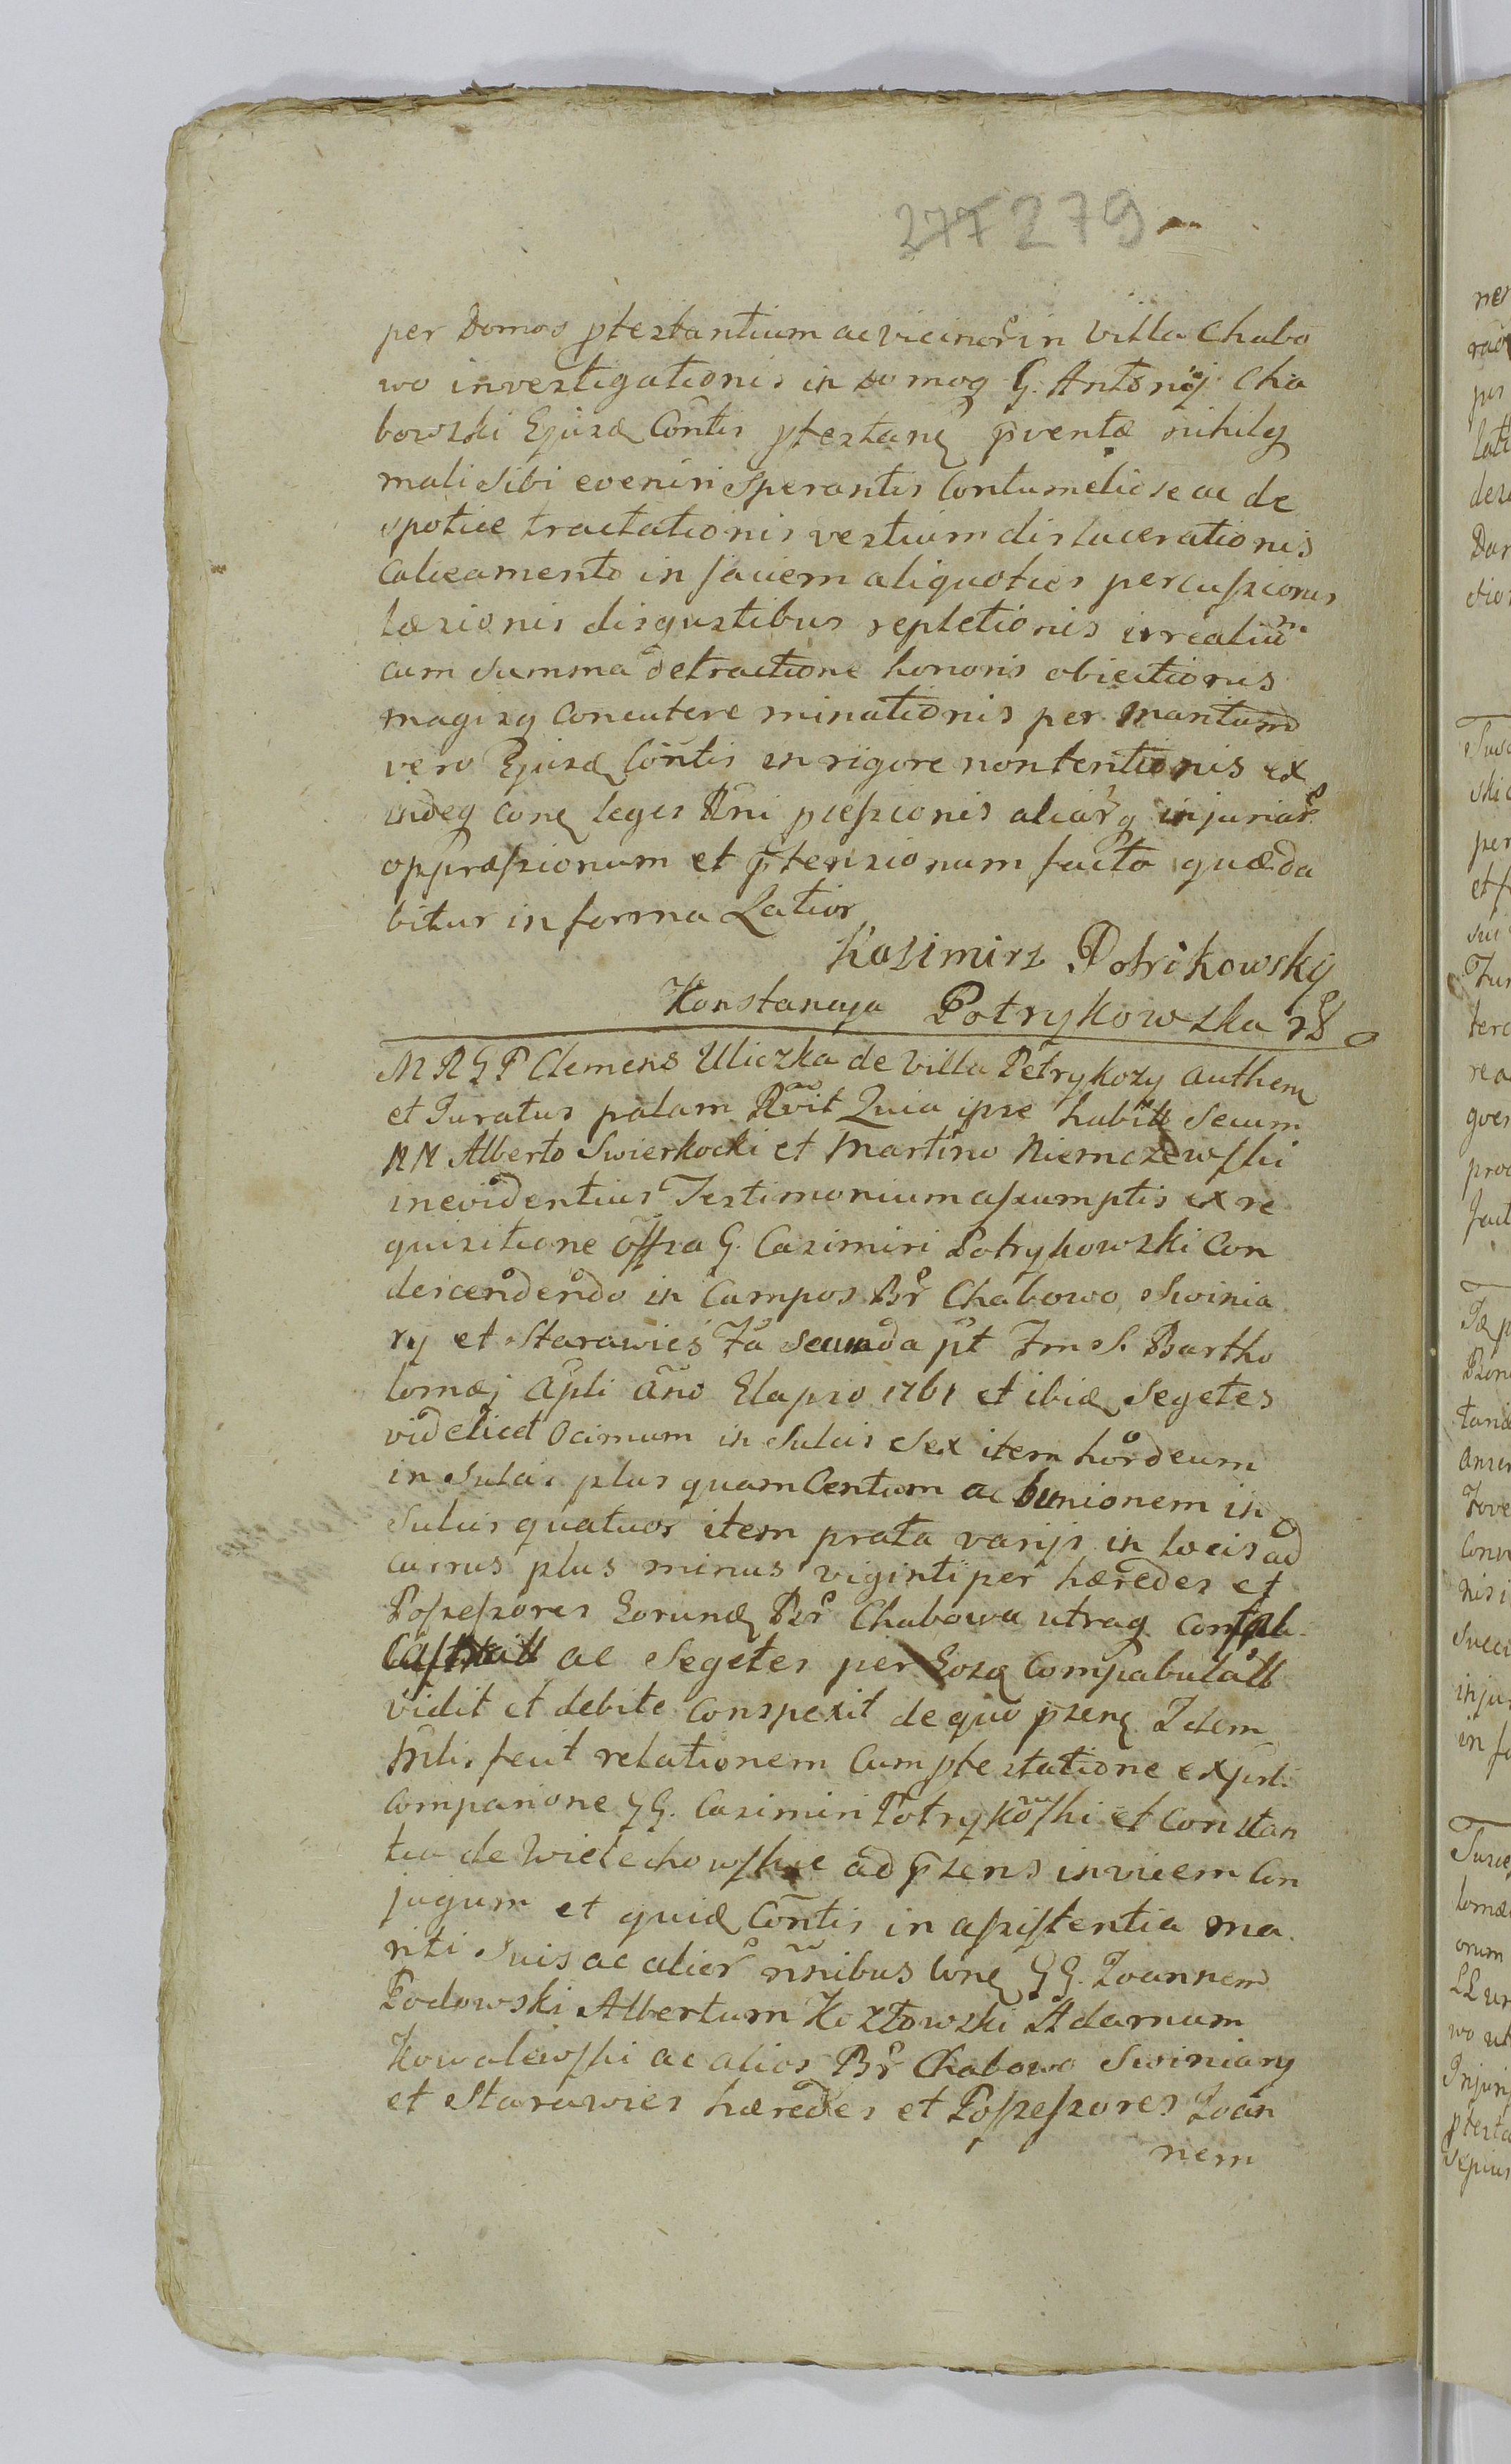 277 279
per Domos ptestantium ac vicinor in Villa Chabo
wo investigationis in domoq G. Antonij Cha
bowski Ejusd Contis ptestant pventæ nihilq
mali sibi eveniri sperantis Contumeliose ac de
spotice tractationis vestium dislacerationis
Calceamento in faciem aliquoties percussionis
læsionis disgustibus repletionis irrealium
cum summa detractione honoris obiectionis
magisq Concutere minationis per Maritum
vero Ejusd Contis in rigore nontentionis ex
indeq cone leges Rni piessionis aliarq injuriar
oppræssionum et ptensionum facto quæ da
bitur in forma Latior
Kasimirz Potrikowsky
Konstancya Potrykowska
M R G P Clemens Uliczka de Villa Petrykozy authem
et Juratus palam Rvit Quia ipse habitis Secum
NN Alberto Swierkocki et Martino Niemczewski
in evidentius Testimonium assumptis ex re
quisitione offsa G. Casimiri Potrykowski Con
descendendo in Campos Br Chabowo Swinia
ry et Starawies fa secunda pt fm S. Bartho
lomæj Apli Ano Elapso 1761 et ibid Segetes
videlicet Ocimum in Sulcis Sex item hordeum
in Sulcis plus quam Centum ac bunionem in
Sulcis quatuor item prata varijs in locis ad
currus plus minus viginti per hæredes et
Possessores Eorund Br Chabowa utraq
ac Segetes per Eosd Compabulatt
vidit et debite Conspexit de quo psens Idem
Mlis fecit relationem Cum ptestatione expsti
Comparione GG. Casimiri Potrykowski et Constan
tia de Wielechowskie ad psens invicem Con
jugum et quid Contis in assistentia ma
riti Suis ac alior nnibus Cone GG. Joannem
Podowski Albertum Kozłowski Adamum
Kowalewski ac alios Br Chabowo Swiniary
et Starawies hæredes et Possessores Joan
nem